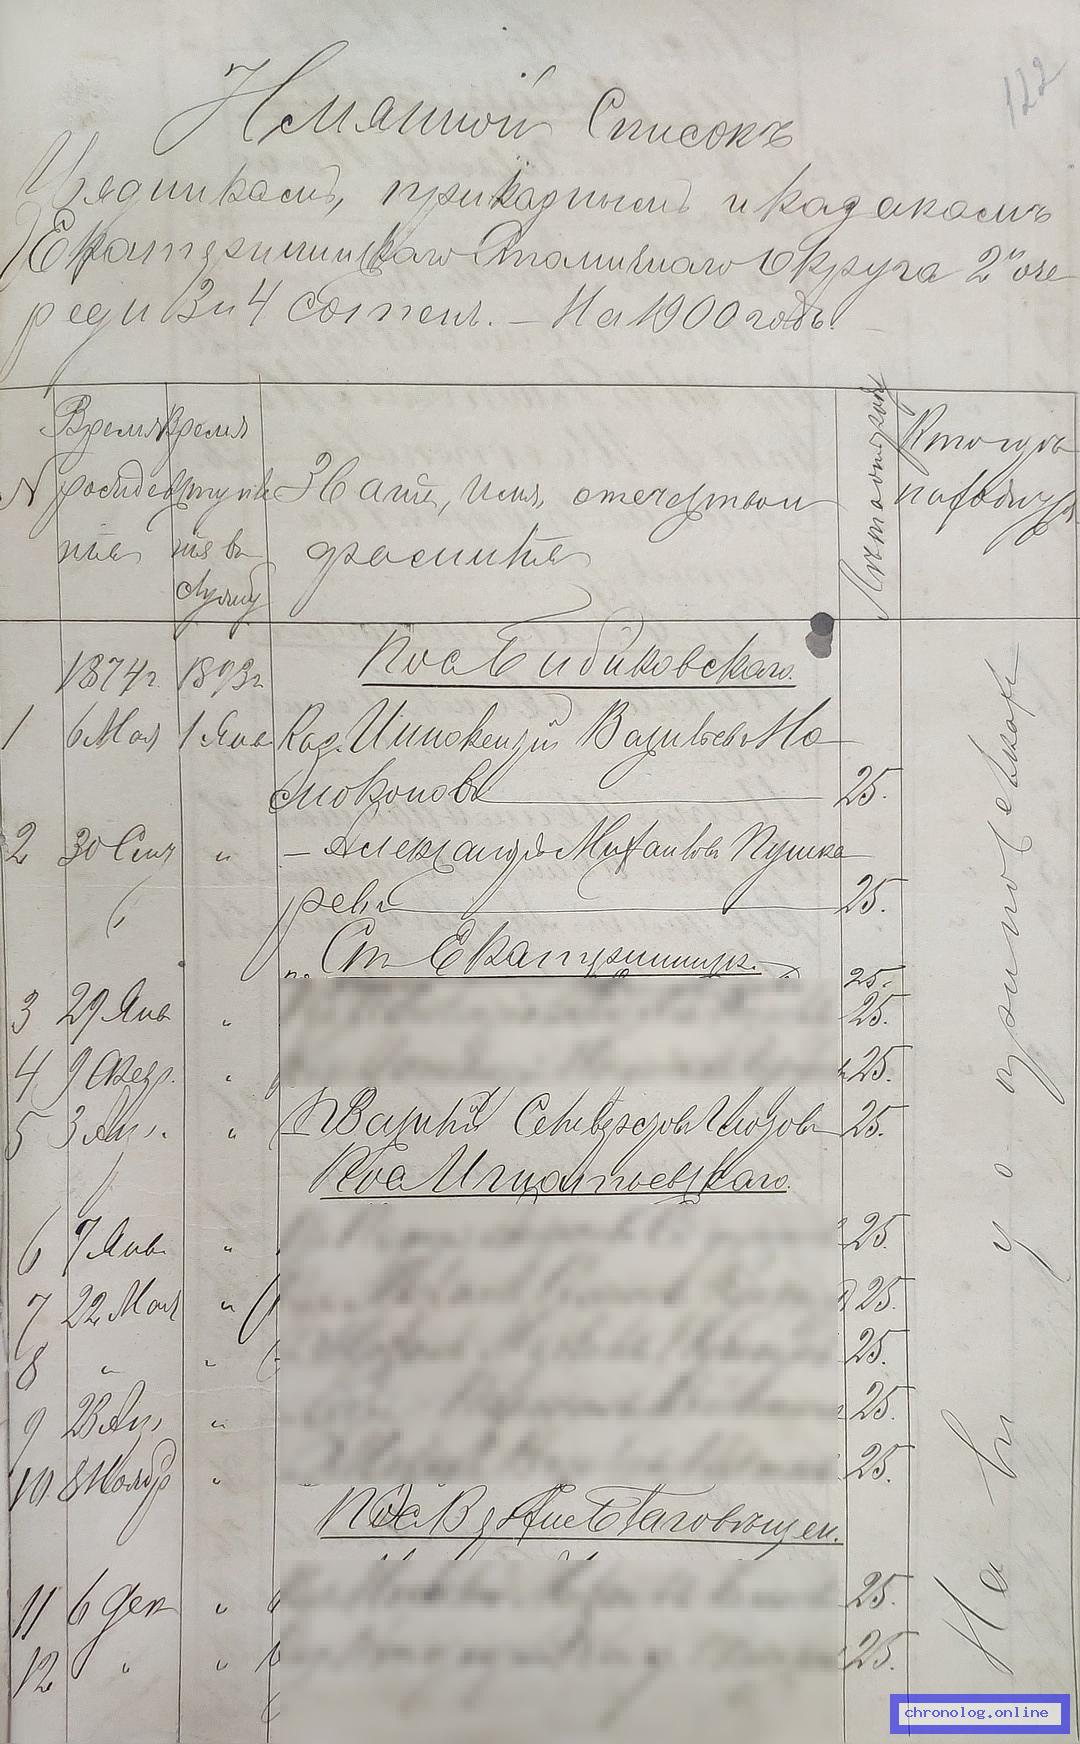 122
Имянной Списокъ
Урядникамъ, приказнымъ и казакамъ
Екатерининскаго Станичнаго Округа 2й оче
реди 3 и 4 сотенъ. — На 1900 годъ.
N
Время рожденія
Время вступленія въ службу
Званіе, имя, отечество и
фамилія
Лѣта отъ роду
Кто гдѣ находится
1874 г. 1893 г. Пос Бибиковскаго.
1 6 Мая 1 Янв Каз. Иннокентій Васильевъ Мо
локоновъ 25.
2 30 Сен „ — Александръ Михайловъ Пушка
ревъ 25.
Ст Екатеринин.
25.
3 29 Янв „ 25.
4 9 Февр. „ 25.
5 3 „ Василій 25.
Пос Игнатьевскаго.
6 7 Янв „ 25.
7 22 Мая „ 25.
8 „ „ 25.
9 23 „ 25.
10 8 Ноябр „ 25.
Пос Благовѣщен.
11 6 Дек „ 25.
12 „ „ 25.
chronolog.online